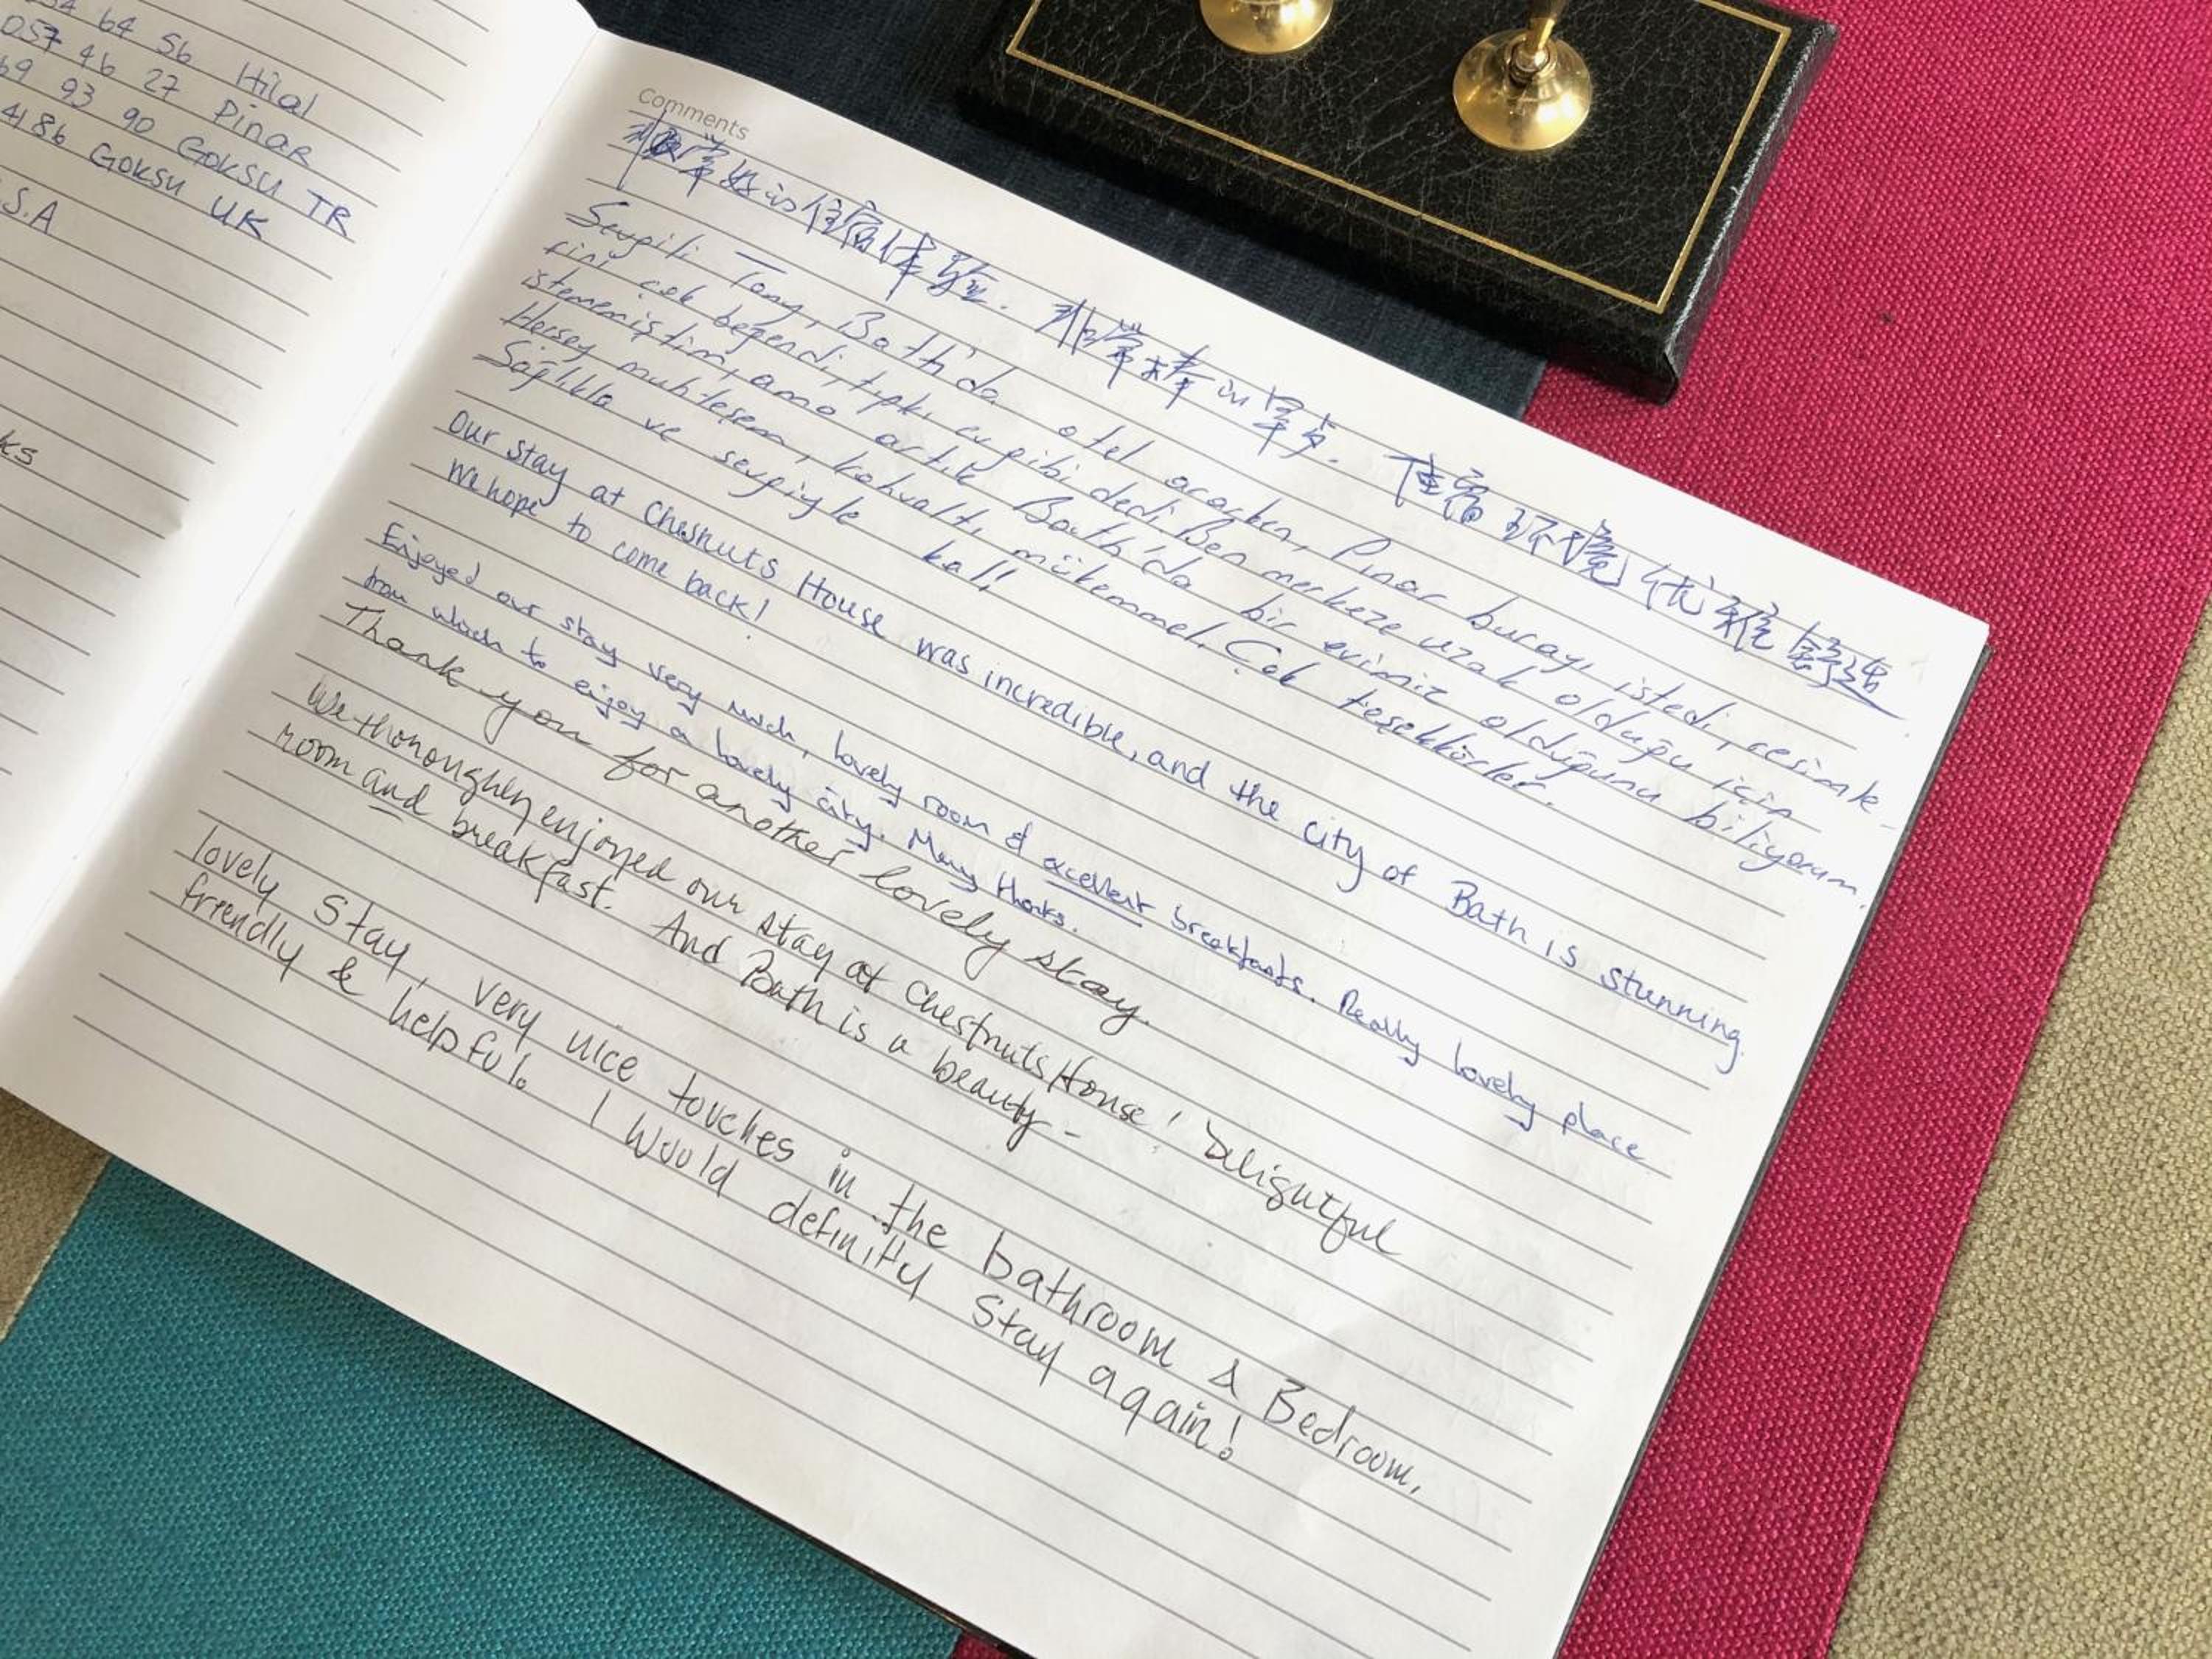 64 56 Hilal
057 46 27 PınaR
69 93 90 GOKSU TR
4186 GOKSU UK
.S.A
ks
Comments
非常好的住宿体验. 非常棒的早点. 住宿环境优雅舒适
Sevgili Tony, Bath'da otel ararken, Pınar burayı istedi, resimle-
rini çok beğendi, tıpkı ev gibi dedi. Ben merkeze uzak olduğu için
istememiştim, ama artık Bath'da bir evimiz olduğunu biliyorum.
Herşey muhteşem, kahvaltı mükemmel. Çok teşekkürler.
Sağlıkla ve sevgiyle kal!
Our stay at Chesnuts House was incredible, and the city of Bath is stunning.
We hope to come back!
Enjoyed our stay very much, lovely room & excellent breakfasts. Really lovely place
from which to enjoy a lovely city. Many thanks.
Thank you for another lovely stay.
We thoroughly enjoyed our stay at Chestnuts House! Delightful
room and breakfast. And Bath is a beauty -
lovely stay, very nice touches in the bathroom & Bedroom,
friendly & helpful. I would definitly stay again!